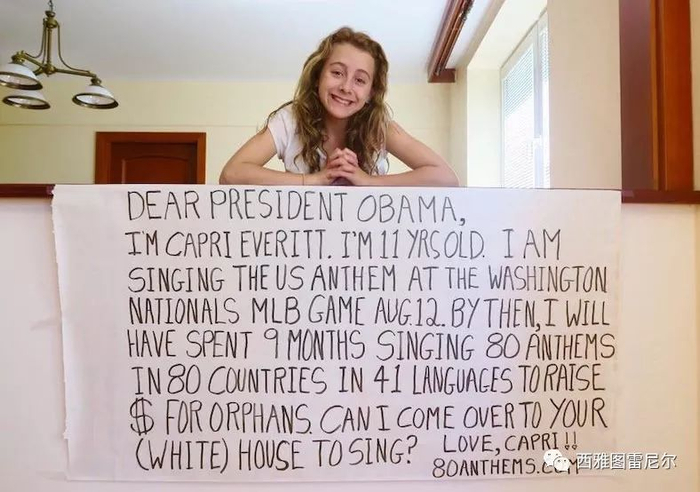 DEAR PRESIDENT OBAMA,
I'M CAPRI EVERITT. I'M 11 YRS OLD. I AM
SINGING THE US ANTHEM AT THE WASHINGTON
NATIONALS MLB GAME AUG.12. BY THEN, I WILL
HAVE SPENT 9 MONTHS SINGING 80 ANTHEMS
IN 80 COUNTRIES IN 41 LANGUAGES TO RAISE
$ FOR ORPHANS. CAN I COME OVER TO YOUR
(WHITE) HOUSE TO SING? LOVE, CAPRI!!
80ANTHEMS.COM
西雅图雷尼尔